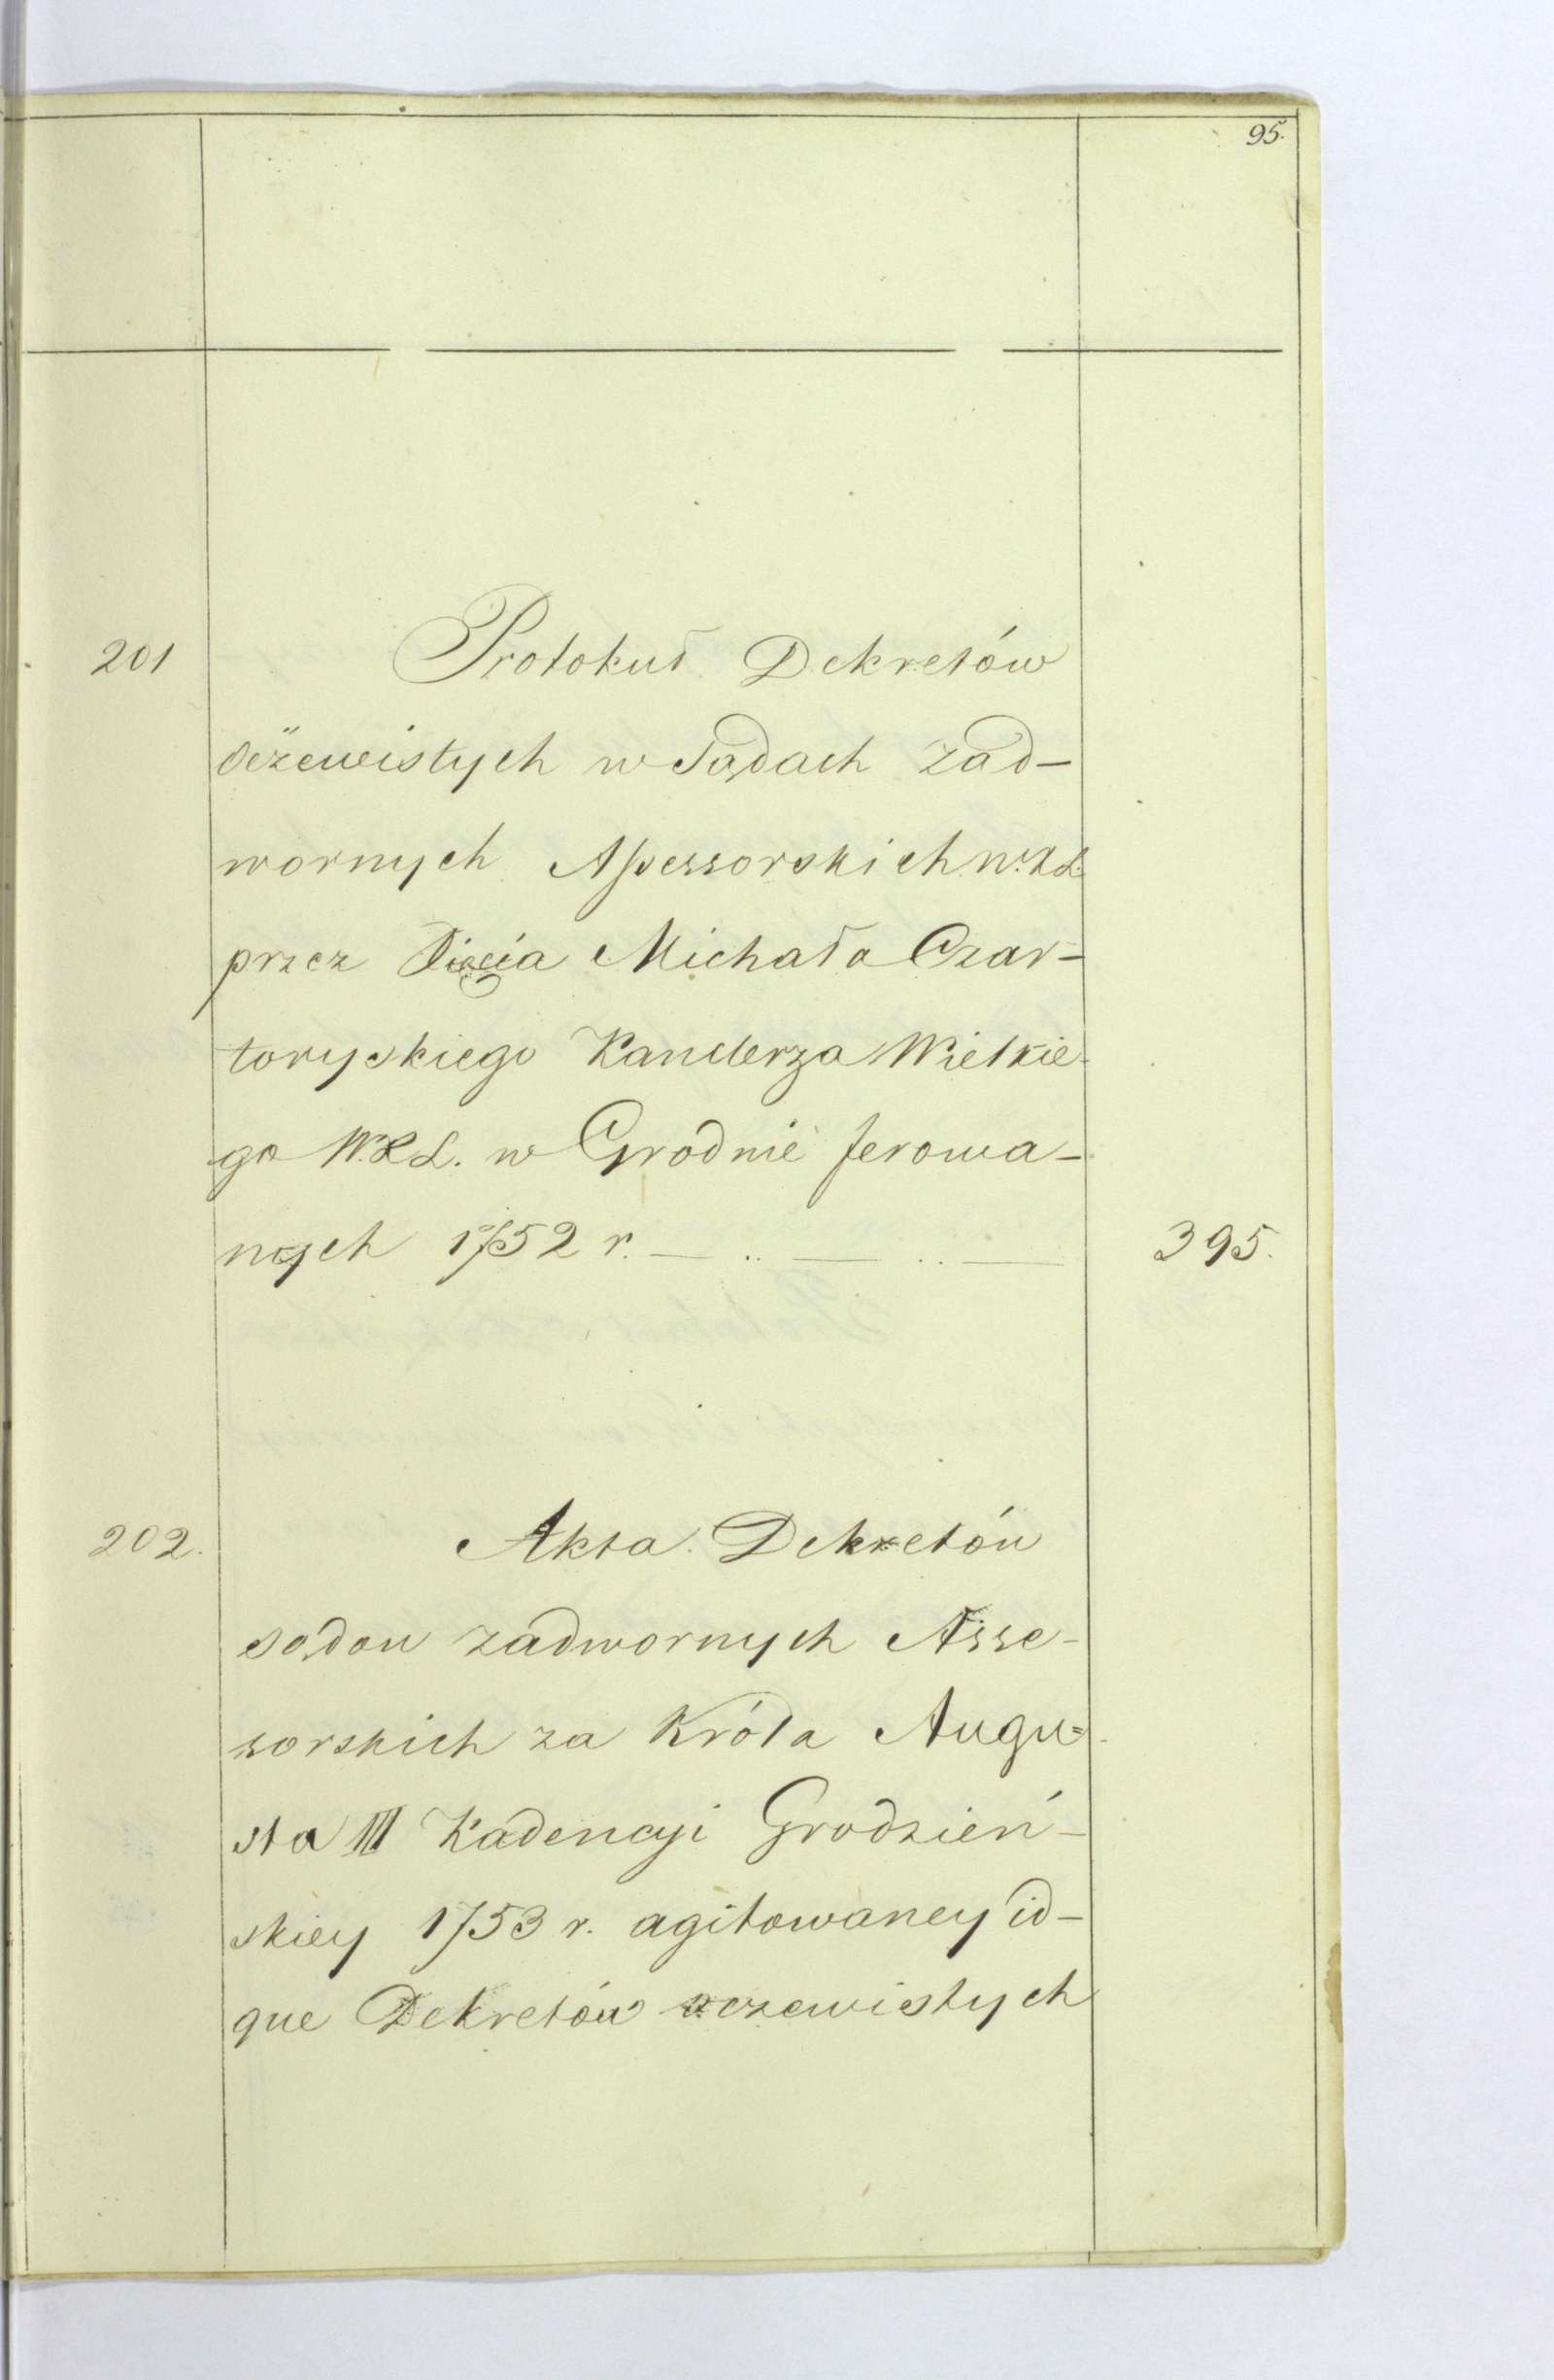 95.
201 Protokuł Dekretów
oczewistych w Sądach Zad-
wornych Assessorskich W.X.L.
przez Xięcia Michała Czar-
toryskiego Kanclerza Wielkie-
go W.X.L. w Grodnie ferowa-
nych 1752 r. — .. — .. — 395.
202. Akta Dekretów
sądow zadwornych Asse-
sorskich za Króla Augu=
sta III Kadencyi Grodzień-
skiey 1753 r. agitowaney id-
que Dekretów oczewistych